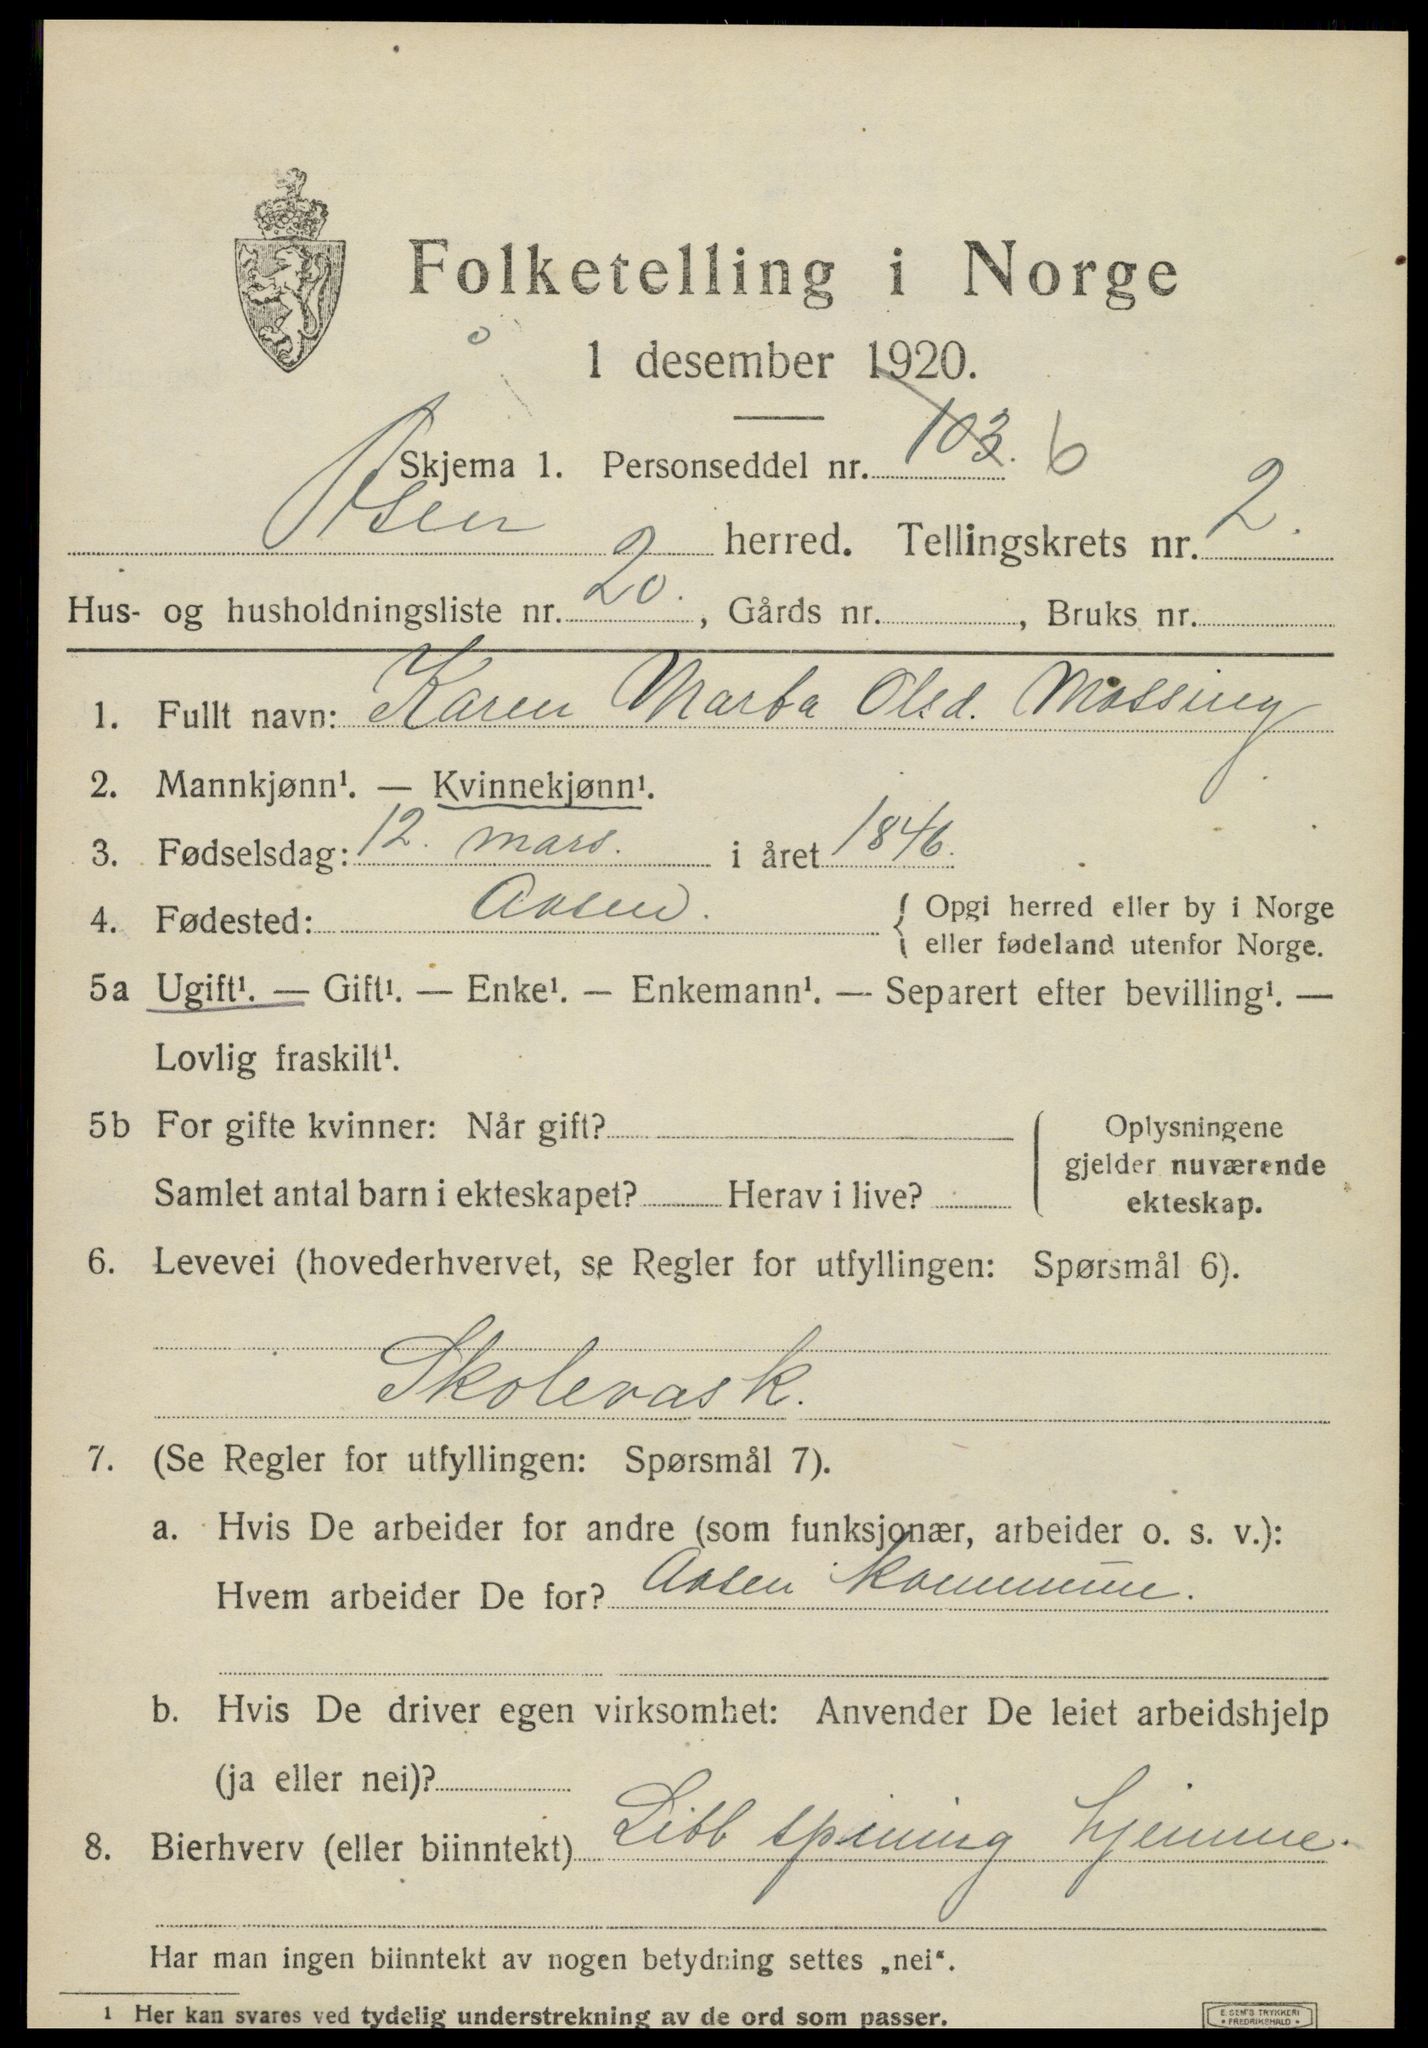 Folketelling i Norge
1 desember 1920.
Skjema 1. Personseddel nr. 103. 6
Åsen herred. Tellingskrets nr. 2.
Hus- og husholdningsliste nr. 20. , Gårds nr. , Bruks nr.
1. Fullt navn: Karen Marta Olsd. Mossing
2. Mannkjønn¹. — Kvinnekjønn¹.
3. Fødselsdag: 12. mars. i året 1846.
4. Fødested: Aasen. { Opgi herred eller by i Norge
eller fødeland utenfor Norge.
5a Ugift¹. — Gift¹. — Enke¹. — Enkemann¹. — Separert efter bevilling¹. —
Lovlig fraskilt¹.
5b For gifte kvinner: Når gift?
Samlet antal barn i ekteskapet? Herav i live?
Oplysningene
gjelder nuværende
ekteskap.
6. Levevei (hovederhvervet, se Regler for utfyllingen: Spørsmål 6).
Skolevask.
7. (Se Regler for utfyllingen: Spørsmål 7).
a. Hvis De arbeider for andre (som funksjonær, arbeider o. s. v.):
Hvem arbeider De for? Aasen kommune.
b. Hvis De driver egen virksomhet: Anvender De leiet arbeidshjelp
(ja eller nei)?
8. Bierhverv (eller biinntekt) Litt spining hjemme.
Har man ingen biinntekt av nogen betydning settes „nei“.
1 Her kan svares ved tydelig understrekning av de ord som passer.
E. SEM'S TRYKKERI
• FREDRIKSHALD •